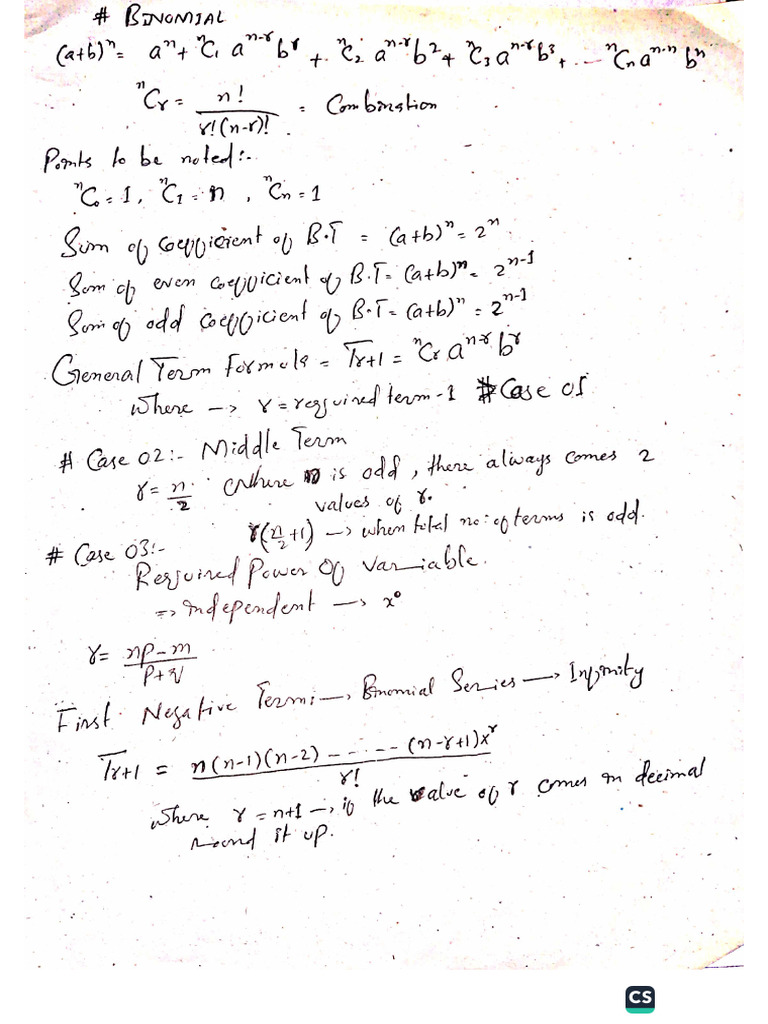 # BINOMIAL
(a+b)ⁿ = aⁿ + ⁿC₁ aⁿ⁻ʳ bʳ + ⁿC₂ aⁿ⁻ʳ b² + ⁿC₃ aⁿ⁻ʳ b³ + ... ⁿCₙ aⁿ⁻ⁿ bⁿ
ⁿCᵣ = n! / r!(n-r)! = Combination
Points to be noted:-
ⁿC₀ = 1, ⁿC₁ = n, ⁿCₙ = 1
Sum of coefficient of B.T = (a+b)ⁿ = 2ⁿ
Sum of even coefficient of B.T = (a+b)ⁿ = 2ⁿ⁻¹
Sum of odd coefficient of B.T = (a+b)ⁿ = 2ⁿ⁻¹
General Term Formula = Tr+1 = ⁿCr aⁿ⁻ʳ bʳ
where → r = required term - 1 # Case 01
# Case 02:- Middle Term
r = n/2 where n is odd, there always comes 2
values of r.
r(n/2 +1) → when total no: of terms is odd.
# Case 03:-
Required Power Of variable.
⇒ independent → x⁰
r = np-m / p+q
First Negative Term: → Binomial Series → Infinity
Tr+1 = n(n-1)(n-2) ------- (n-r+1)xʳ / r!
where r = n+1 → if the value of r comes in decimal
round it up.
CS